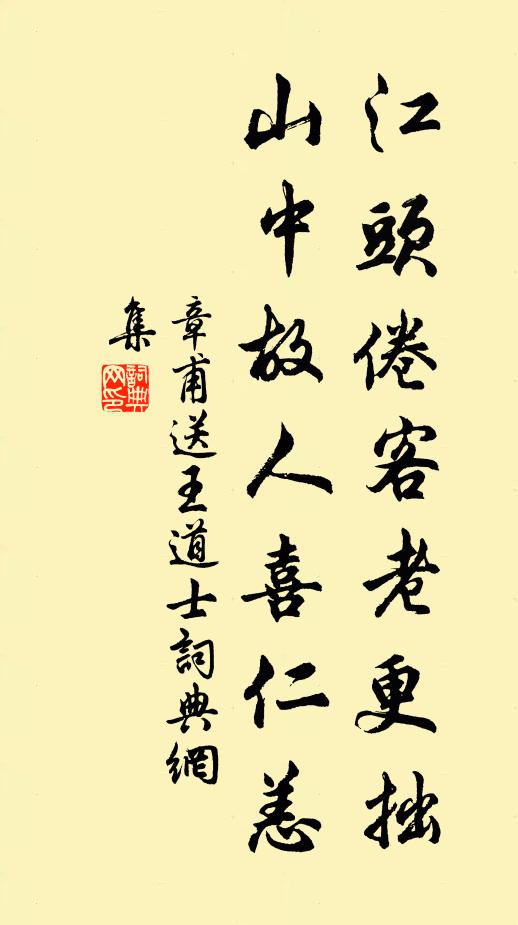 江頭倦客老更拙
山中故人喜仁恙
章甫送王道士詞典網
集
詞典網印